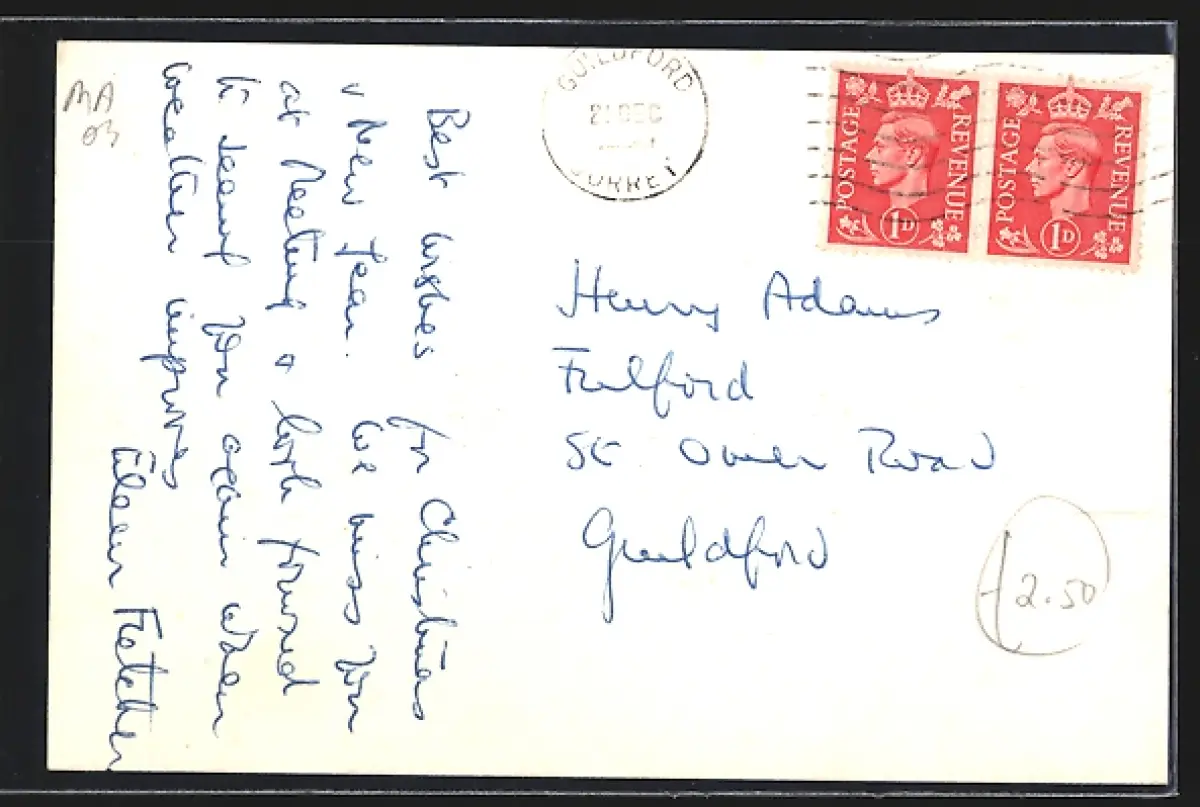 MA
03
Best wishes for Christmas
& New Year. We miss you
at Meeting & look forward
to seeing you again when
weather improves
Eileen Fletcher
GUILDFORD
21 DEC
SURREY
POSTAGE REVENUE
1D
POSTAGE REVENUE
1D
Henry Adams
Fulford
St Omer Road
Guildford
2.50